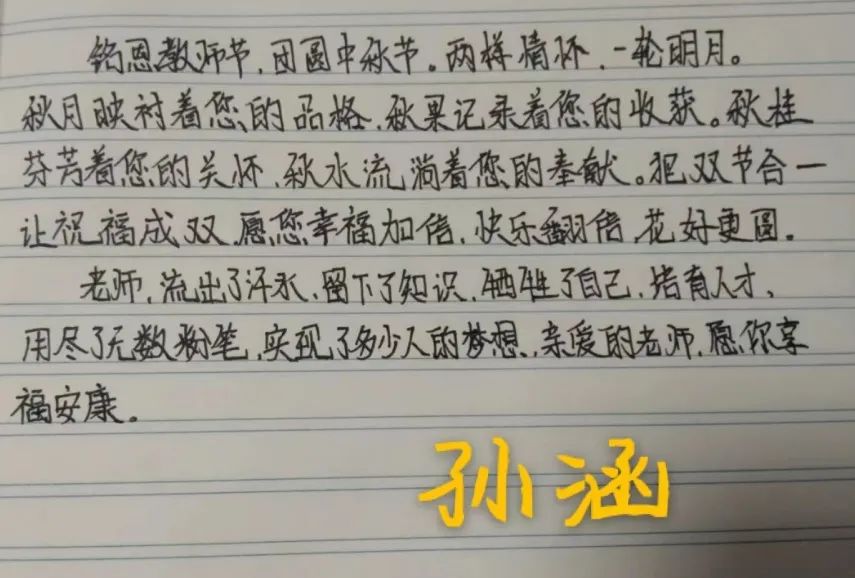 铭恩教师节，团圆中秋节。两样情怀，一轮明月。
秋月映衬着您的品格，秋果记录着您的收获。秋桂
芬芳着您的关怀，秋水流淌着您的奉献。犯双节合一
让祝福成双，愿您幸福加倍，快乐翻倍，花好更圆。
老师，流出了汗水，留下了知识，牺牲了自己，培育人才，
用尽了无数粉笔，实现了多少人的梦想，亲爱的老师，愿你享
福安康。
孙涵